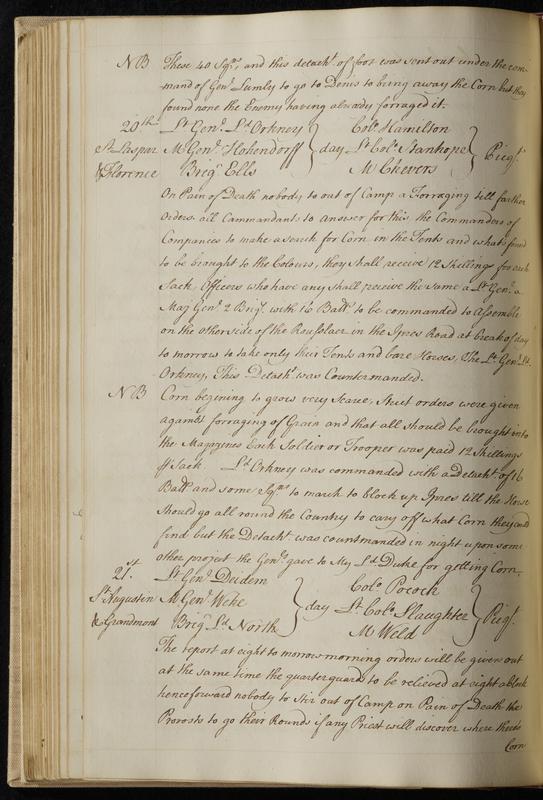 NB These 40 Sqrs, and this detacht of foot was sent out under the com-
mand of Genl Lumly to go to Denis to bring away the Corn but they
found none the Enemy having already forraged it.
20th Lt Genl Ld Orkney Colo Hamilton
St Lesper M Genl Hohendorff day Lt Colo Stanhope Piqt
& Florence Brigr Ells M Chevers
On Pain of Death nobody to out of Camp a Forraging till farther
Orders. all Commandants to answer for this, the Commanders of
Companees to make a search for Corn in the Tents and what's found
to be brought to the Colours, they shall receive 12 Shillings for each
Sack Officers who have any shall receive the same a Lt Genl a
Maj Genl 2 Brigr with 16 Batt to be commanded to Assemble
on the other side of the Rousselaer in the Ipres Road at break of day
to morrow to take only their Tents and bare Horses, The Lt Genl Ld
Orkney, This Detacht was Countermanded.
NB Corn begining to grow very Scarce, Strict orders were given
against forraging of Grain and that all should be brought into
the Magazines Each Soldier or Trooper was paid 12 Shillings
ff Sack Ld Orkney was commanded with a Detacht of 16
Batt and some Sqrns to march to block up Ipres till the Horse
should go all round the Country to cary off what Corn they could
find but the Detacht was countmanded in night upon some
other project the Genl gave to My Ld Duke for getting Corn.
21st Lt Genl Deidem Colo Pocock
St Augustin M Genl Weke day Lt Colo Slaughter Piqt
& Grandmont Brigr Ld North M Weld
The report at eight to morrow morning orders will be given out
at the same time the quarterguard to be relieved at eight a clock
henceforward nobody to Stir out of Camp on Pain of Death the
Provosts to go their Rounds if any Priest will discover where there's
Corn